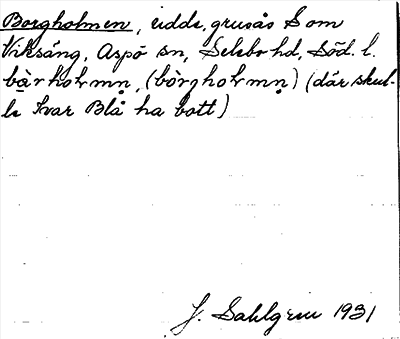 Borgholmen, udde, grusås S om
Viksäng, Aspö sn, Selebo hd, Söd. l.
bàrholmn̥, (bòrgholmn̥) (där skul-
le Ivar Blå ha bott)
J. Sahlgren 1931